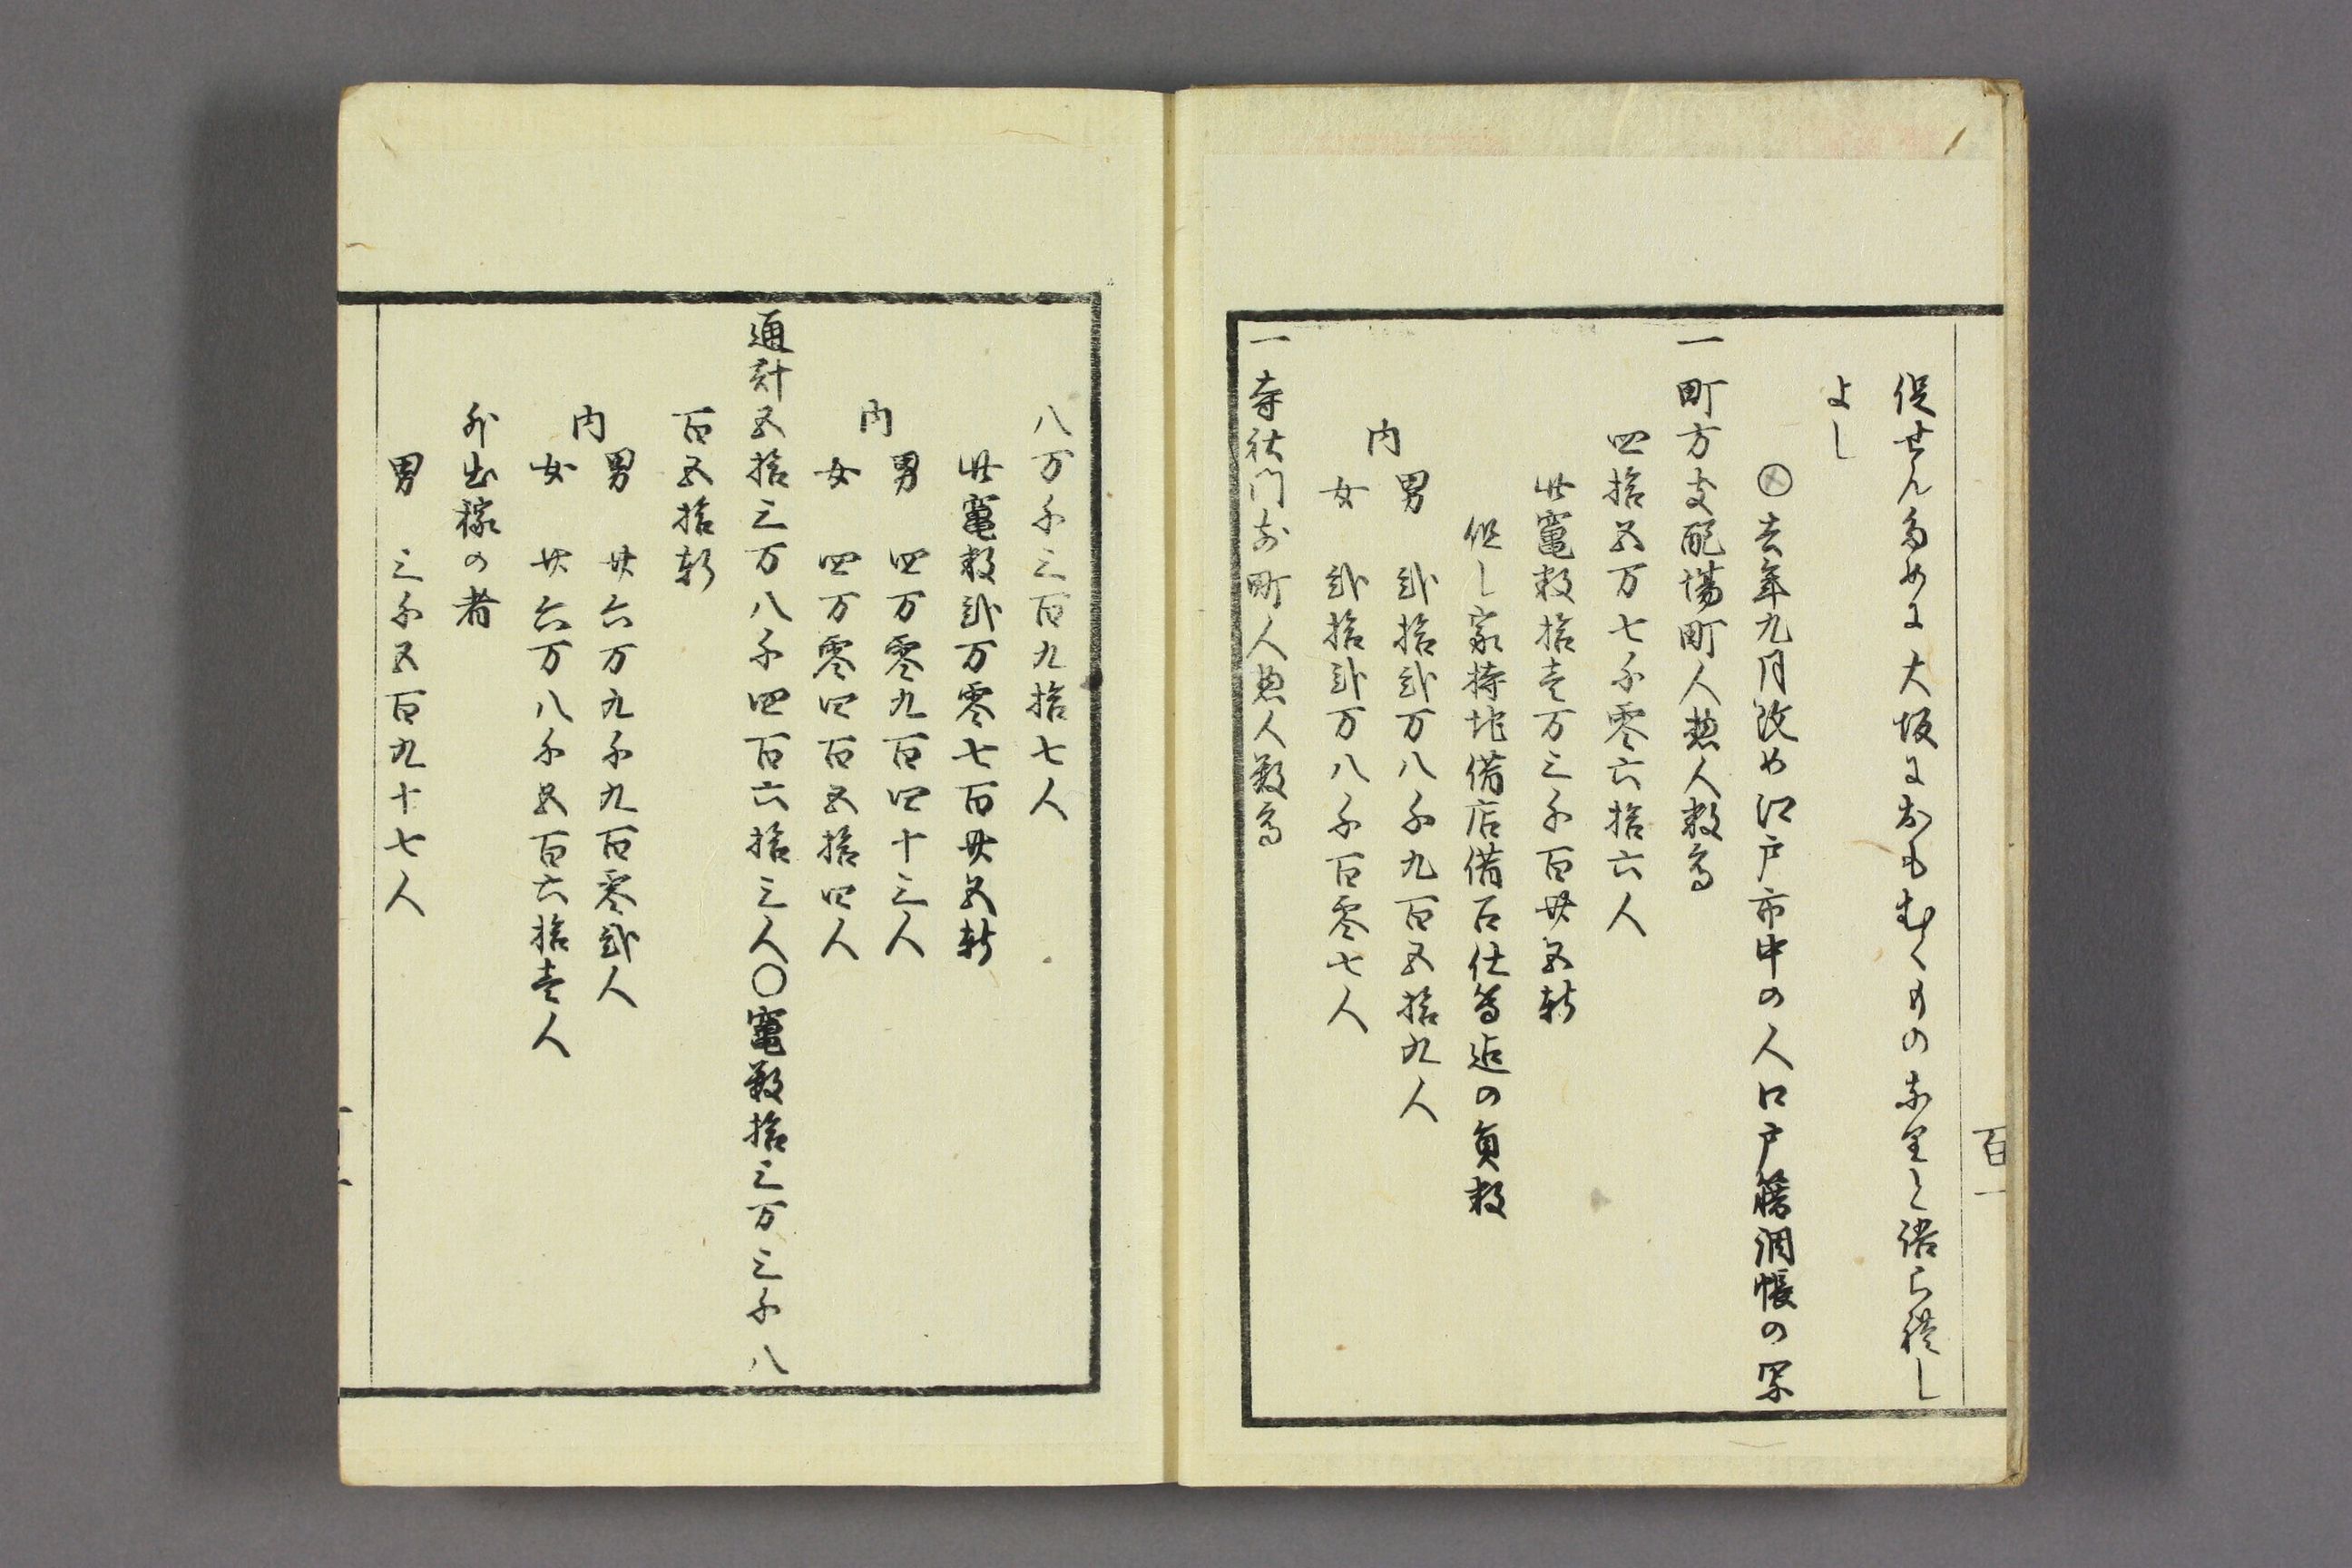 促せん為めに大坂におもむくものなりと語られし
よし
去年九月改め江戸市中の人口戸籍調帳の写
一町方支配場町人惣人数高
四拾五万七千零六拾六人
此竈数拾壱万三千百廿五軒
但し家持地借店借召仕等迄の員数
内
男 弐拾弐万八千九百五拾九人
女 弐拾弐万八千百零七人
一寺社門前町人惣人数高
百一
八万千三百九拾七人
此竈数弐万零七百廿五軒
内
男 四万零九百四十三人
女 四万零四百五拾四人
通計五拾三万八千四百六拾三人〇竈数拾三万三千八
百五拾軒
内
男 廿六万九千九百零弐人
女 廿六万八千五百六拾壱人
外出稼の者
男 三千五百九十七人